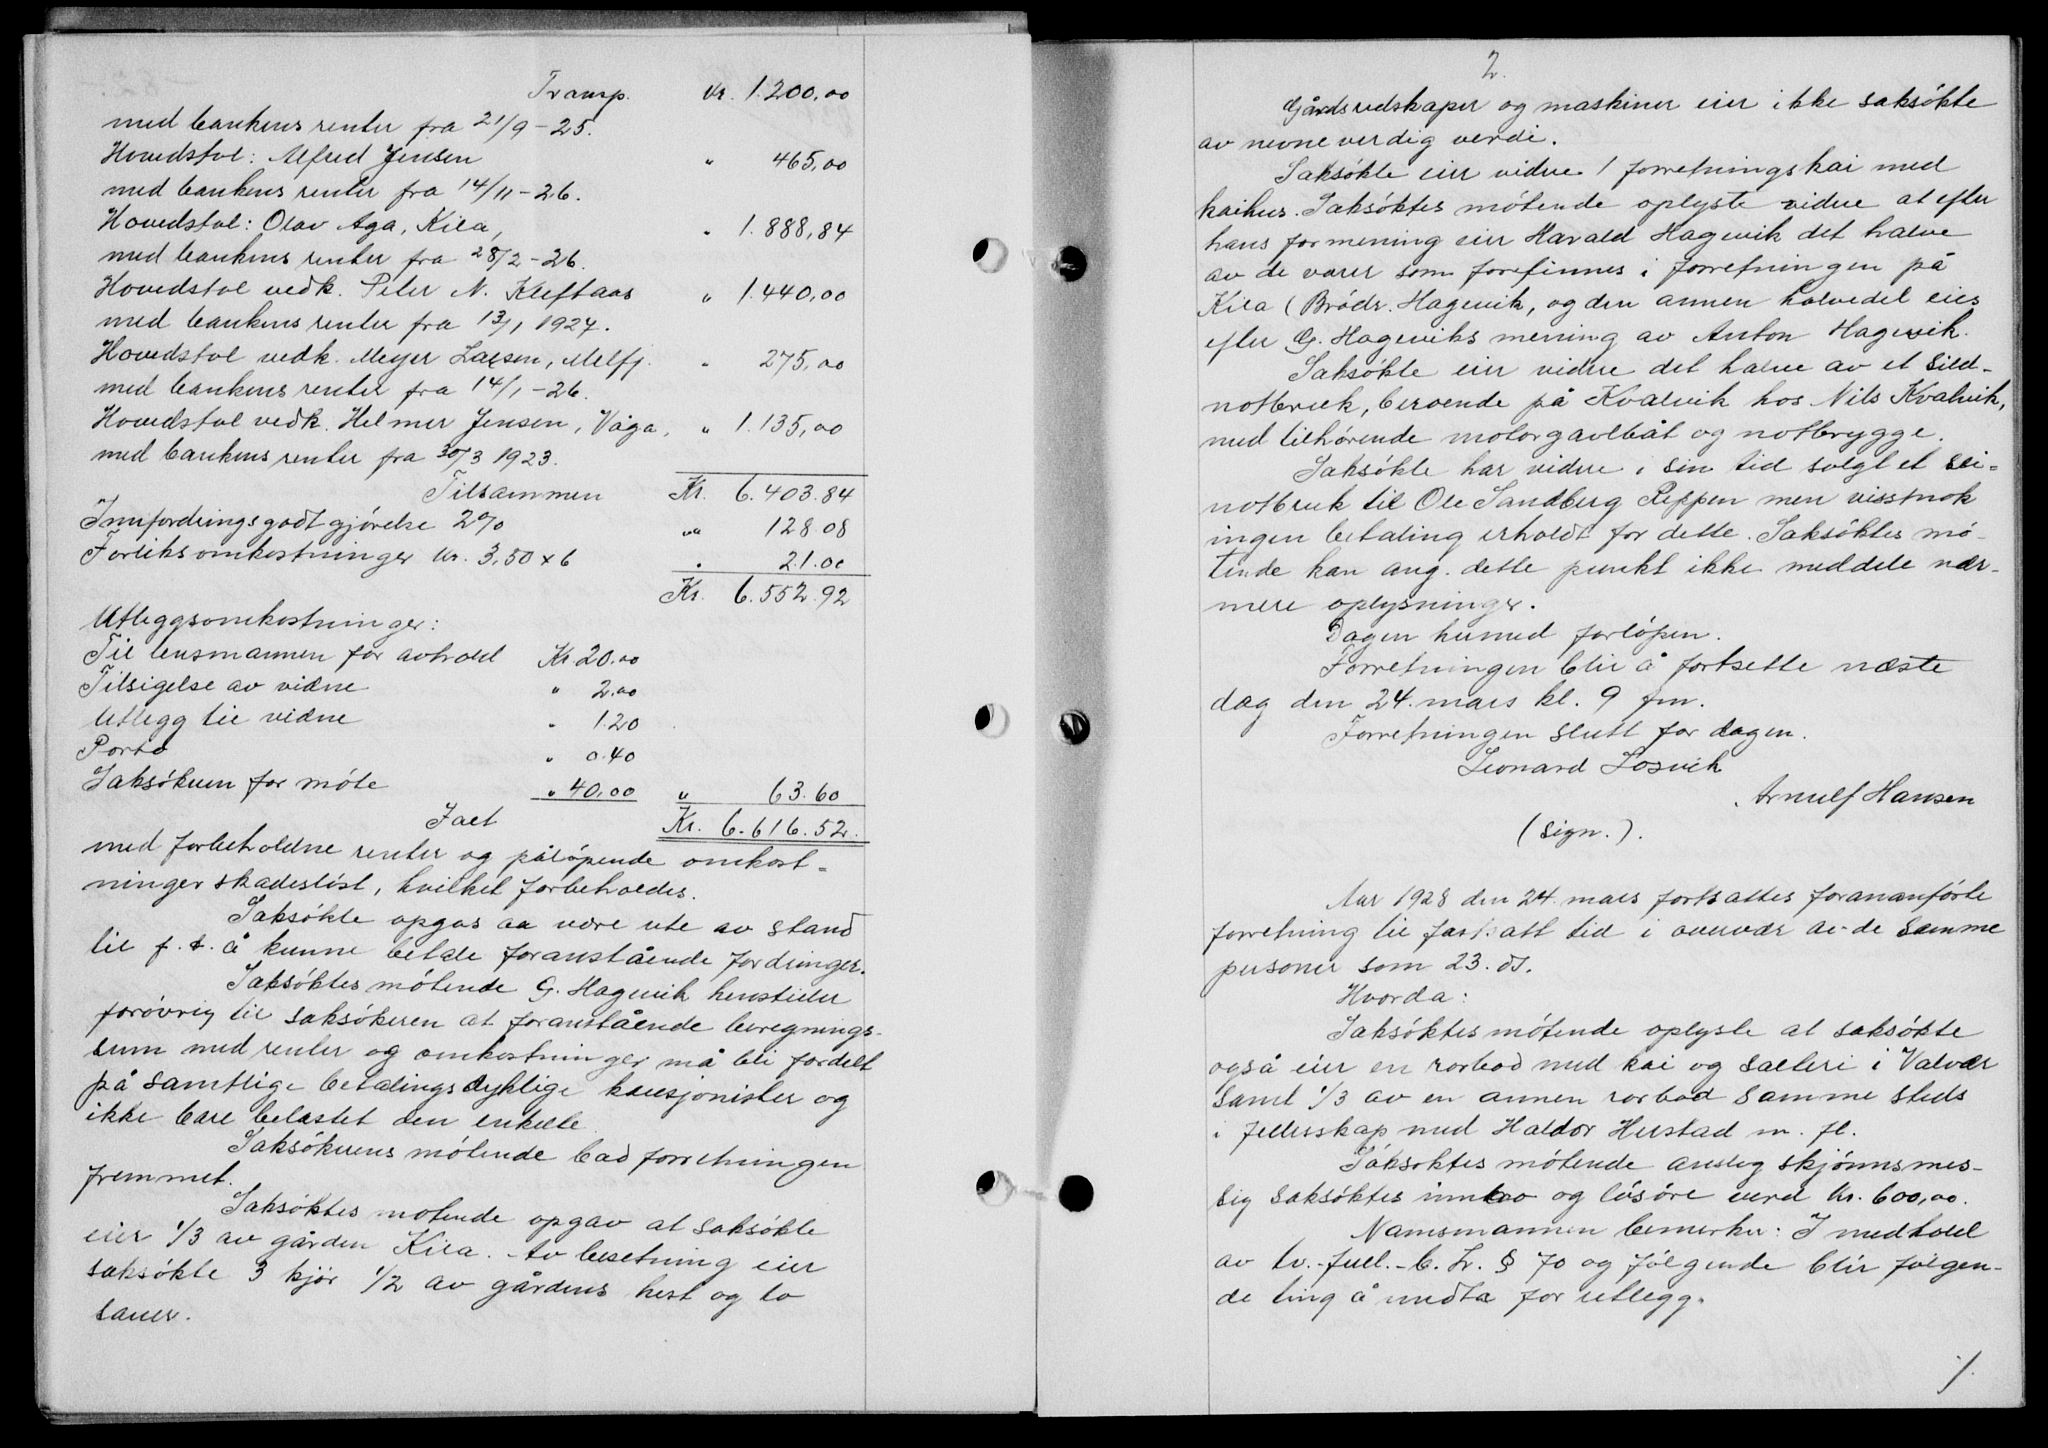 Transp. Kr. 1.200,00
med bankens renter fra 21/9-25.
Hovedstol: Alfred Jensen " 465,00
med bankens renter fra 14/11-26.
Hovedstol: Olav Aga, Kila, " 1.888,84
med bankens renter fra 28/2-26.
Hovedstol vedk. Peter N. Kleftaas " 1.440,00
med bankens renter fra 13/1 1927.
Hovedstol vedk. Meyer Larsen, Melfj. " 275,00
med bankens renter fra 14/1-26.
Hovedstol vedk. Helmer Jensen, Våga, " 1.135,00
med bankens renter fra 30/3 1923.
Tilsammen Kr. 6.403.84
Innfordringsgodtgjørelse 2% " 128 08
Forliksomkostninger kr. 3,50 x 6 " 21.00
Kr. 6.552.92
Utleggsomkostninger:
Til lensmannen for avhold Kr. 20.00
Tilsigelse av vidne " 2.00
Utlegg til vidne " 1.20
Porto " 0.40
Saksøkeren for møte " 40,00 " 63.60
Ialt Kr. 6.616.52.
med forbeholdne renter og påløpende omkost-
ninger skadesløst, hvilket forbeholdes.
Saksøkte opgas aa være ute av stand
til f. t. å kunne betale foranstående fordringer.
Saksøktes møtende G. Hagevik henstiller
forøvrig til saksøkeren at foranstående beregnings-
sum med renter og omkostninger må bli fordelt
på samtlige betalingsdyktige kausjonister og
ikke bare belastet den enkelte.
Saksøkerens møtende bad forretningen
fremmet.
Saksøktes møtende opgav at saksøkte
eier 1/3 av gården Kila. Av besetning eier
saksøkte 3 kjør 1/2 av gårdens hest og to
sauer.
2.
Gårdsredskaper og maskiner eier ikke saksøkte
av nevneverdig verdi.
Saksøkte eier videre 1 forretningskai med
kaihus. Saksøktes møtende oplyste videre at efter
hans formening eier Harald Hagevik det halve
av de varer som forefinnes i forretningen på
Kila (Brødr. Hagevik, og den annen halvedel eies
efter G. Hageviks mening av Anton Hagevik.
Saksøkte eier videre det halve av et sild-
notbruk, beroende på Kvalvik hos Nils Kvalvik,
med tilhørende motorgavlbåt og notbrygge.
Saksøkte har videre i sin tid solgt et sei-
notbruk til Ole Sandberg Reppen men visstnok
ingen betaling erholdt for dette. Saksøktes mø-
tende kan ang. dette punkt ikke meddele nær-
mere oplysninger.
Dagen hermed forløpen.
Forretningen blir å fortsette næste
dag den 24. mars kl. 9 fm.
Forretningen slutt for dagen.
Leonard Losvik
Arnulf Hansen
(sign.).
Aar 1928 den 24. mars fortsattes forananførte
forretning til fastsatt tid i overvær av de samme
personer som 23. ds.
Hvorda:
Saksøktes møtende oplyste at saksøkte
også eier en rorbod med kai og salteri i Valvær
samt 1/3 av en annen rorbod samme steds
i fellesskap med Haldor Herstad m. fl.
Saksøktes møtende anslog skjønnsmes-
sig saksøktes innbo og løsøre verd kr. 600,00.
Namsmannen bemerker: I medhold
av tv.-full.-b. Lr. § 70 og følgende blir følgen-
de ting å medta for utlegg.